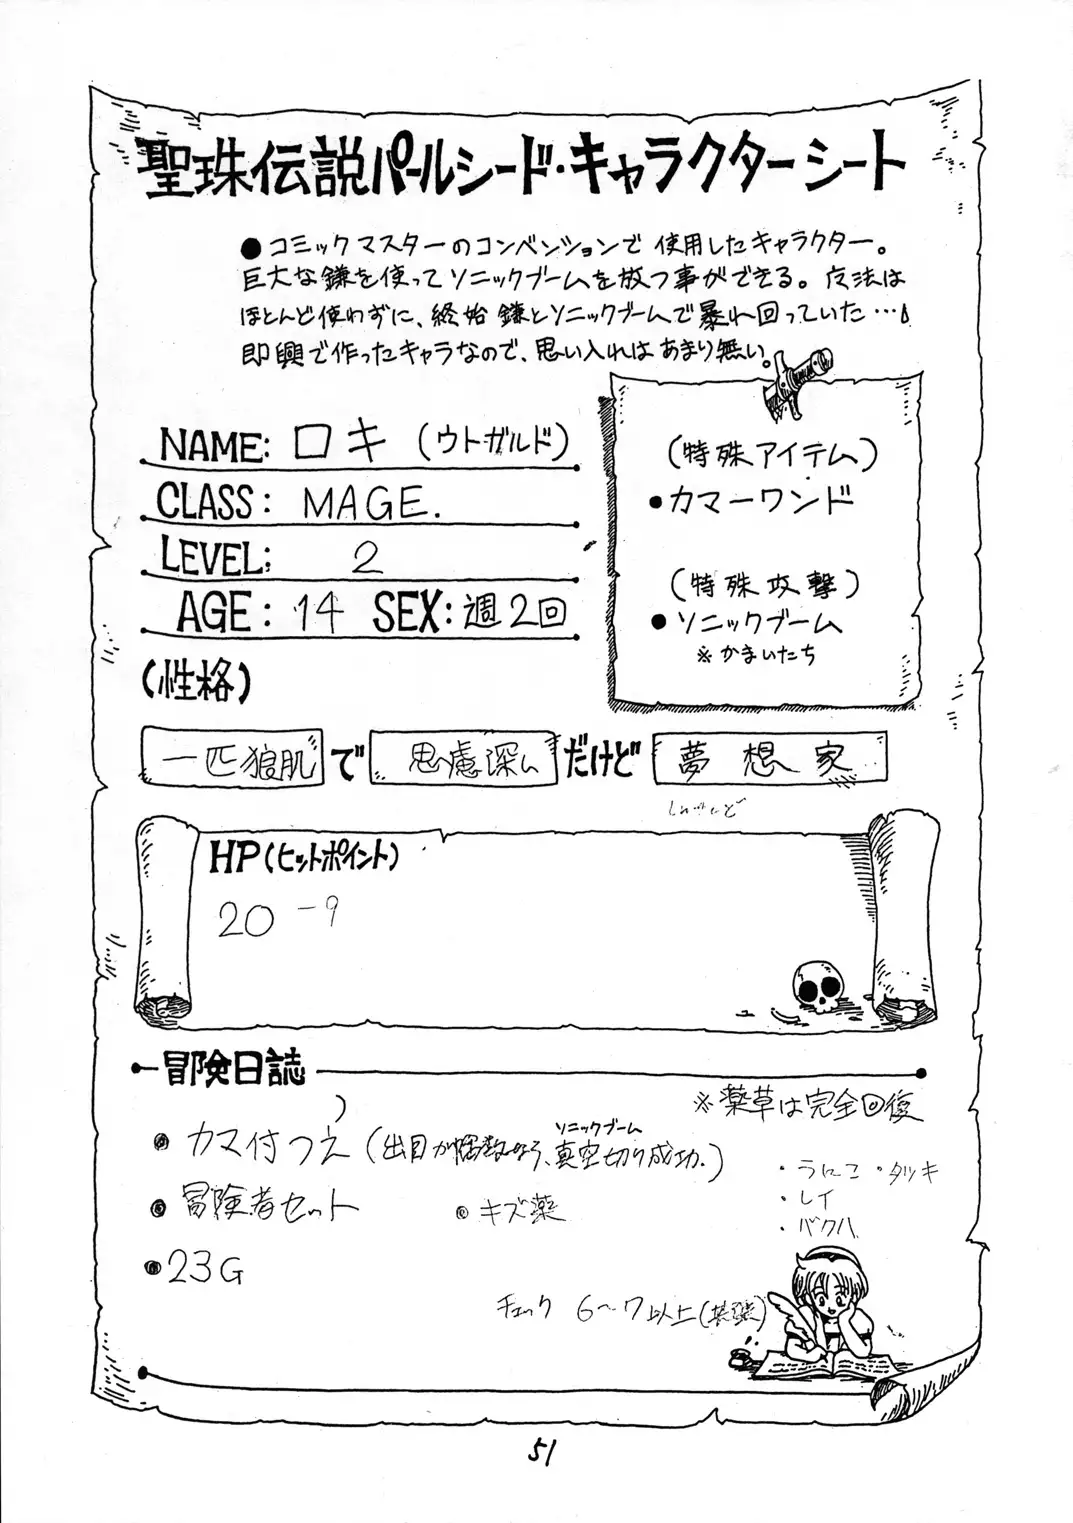 聖珠伝説パールシード・キャラクターシート
●コミックマスターのコンベンションで使用したキャラクター。
巨大な鎌を使ってソニックブームを放つ事ができる。魔法は
ほとんど使わずに、終始鎌とソニックブームで暴れ回っていた…
即興で作ったキャラなので、思い入れはあまり無い。
NAME: ロキ (ウトガルド)
CLASS: MAGE.
LEVEL: 2
AGE: 14 SEX: 週2回
(特殊アイテム)
●カマーワンド
(特殊攻撃)
●ソニックブーム
※かまいたち
(性格)
一匹狼肌で思慮深いだけど夢想家
HP(ヒットポイント)
20 -9
冒険日誌
※薬草は完全回復
カマ付つえ(出目が偶数なら、真空切り成功.)
ソニックブーム
冒険者セット
キズ薬
・うにこ・タッキ
・レイ
・バクハ
23G
チェック 6~7以上
51